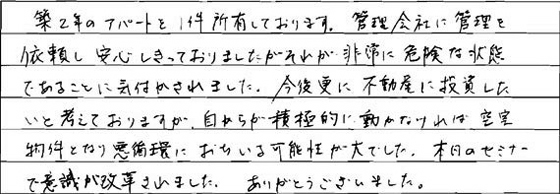 築2年のアパートを1件所有しております。管理会社に管理を
依頼し安心しきっておりましたがそれが非常に危険な状態
であることに気付かされました。今後更に不動産に投資した
いと考えておりますが、自からが積極的に動かなければ空室
物件となり悪循環におちいる可能性が大でした。本日のセミナー
で意識が改革されました。ありがとうございました。